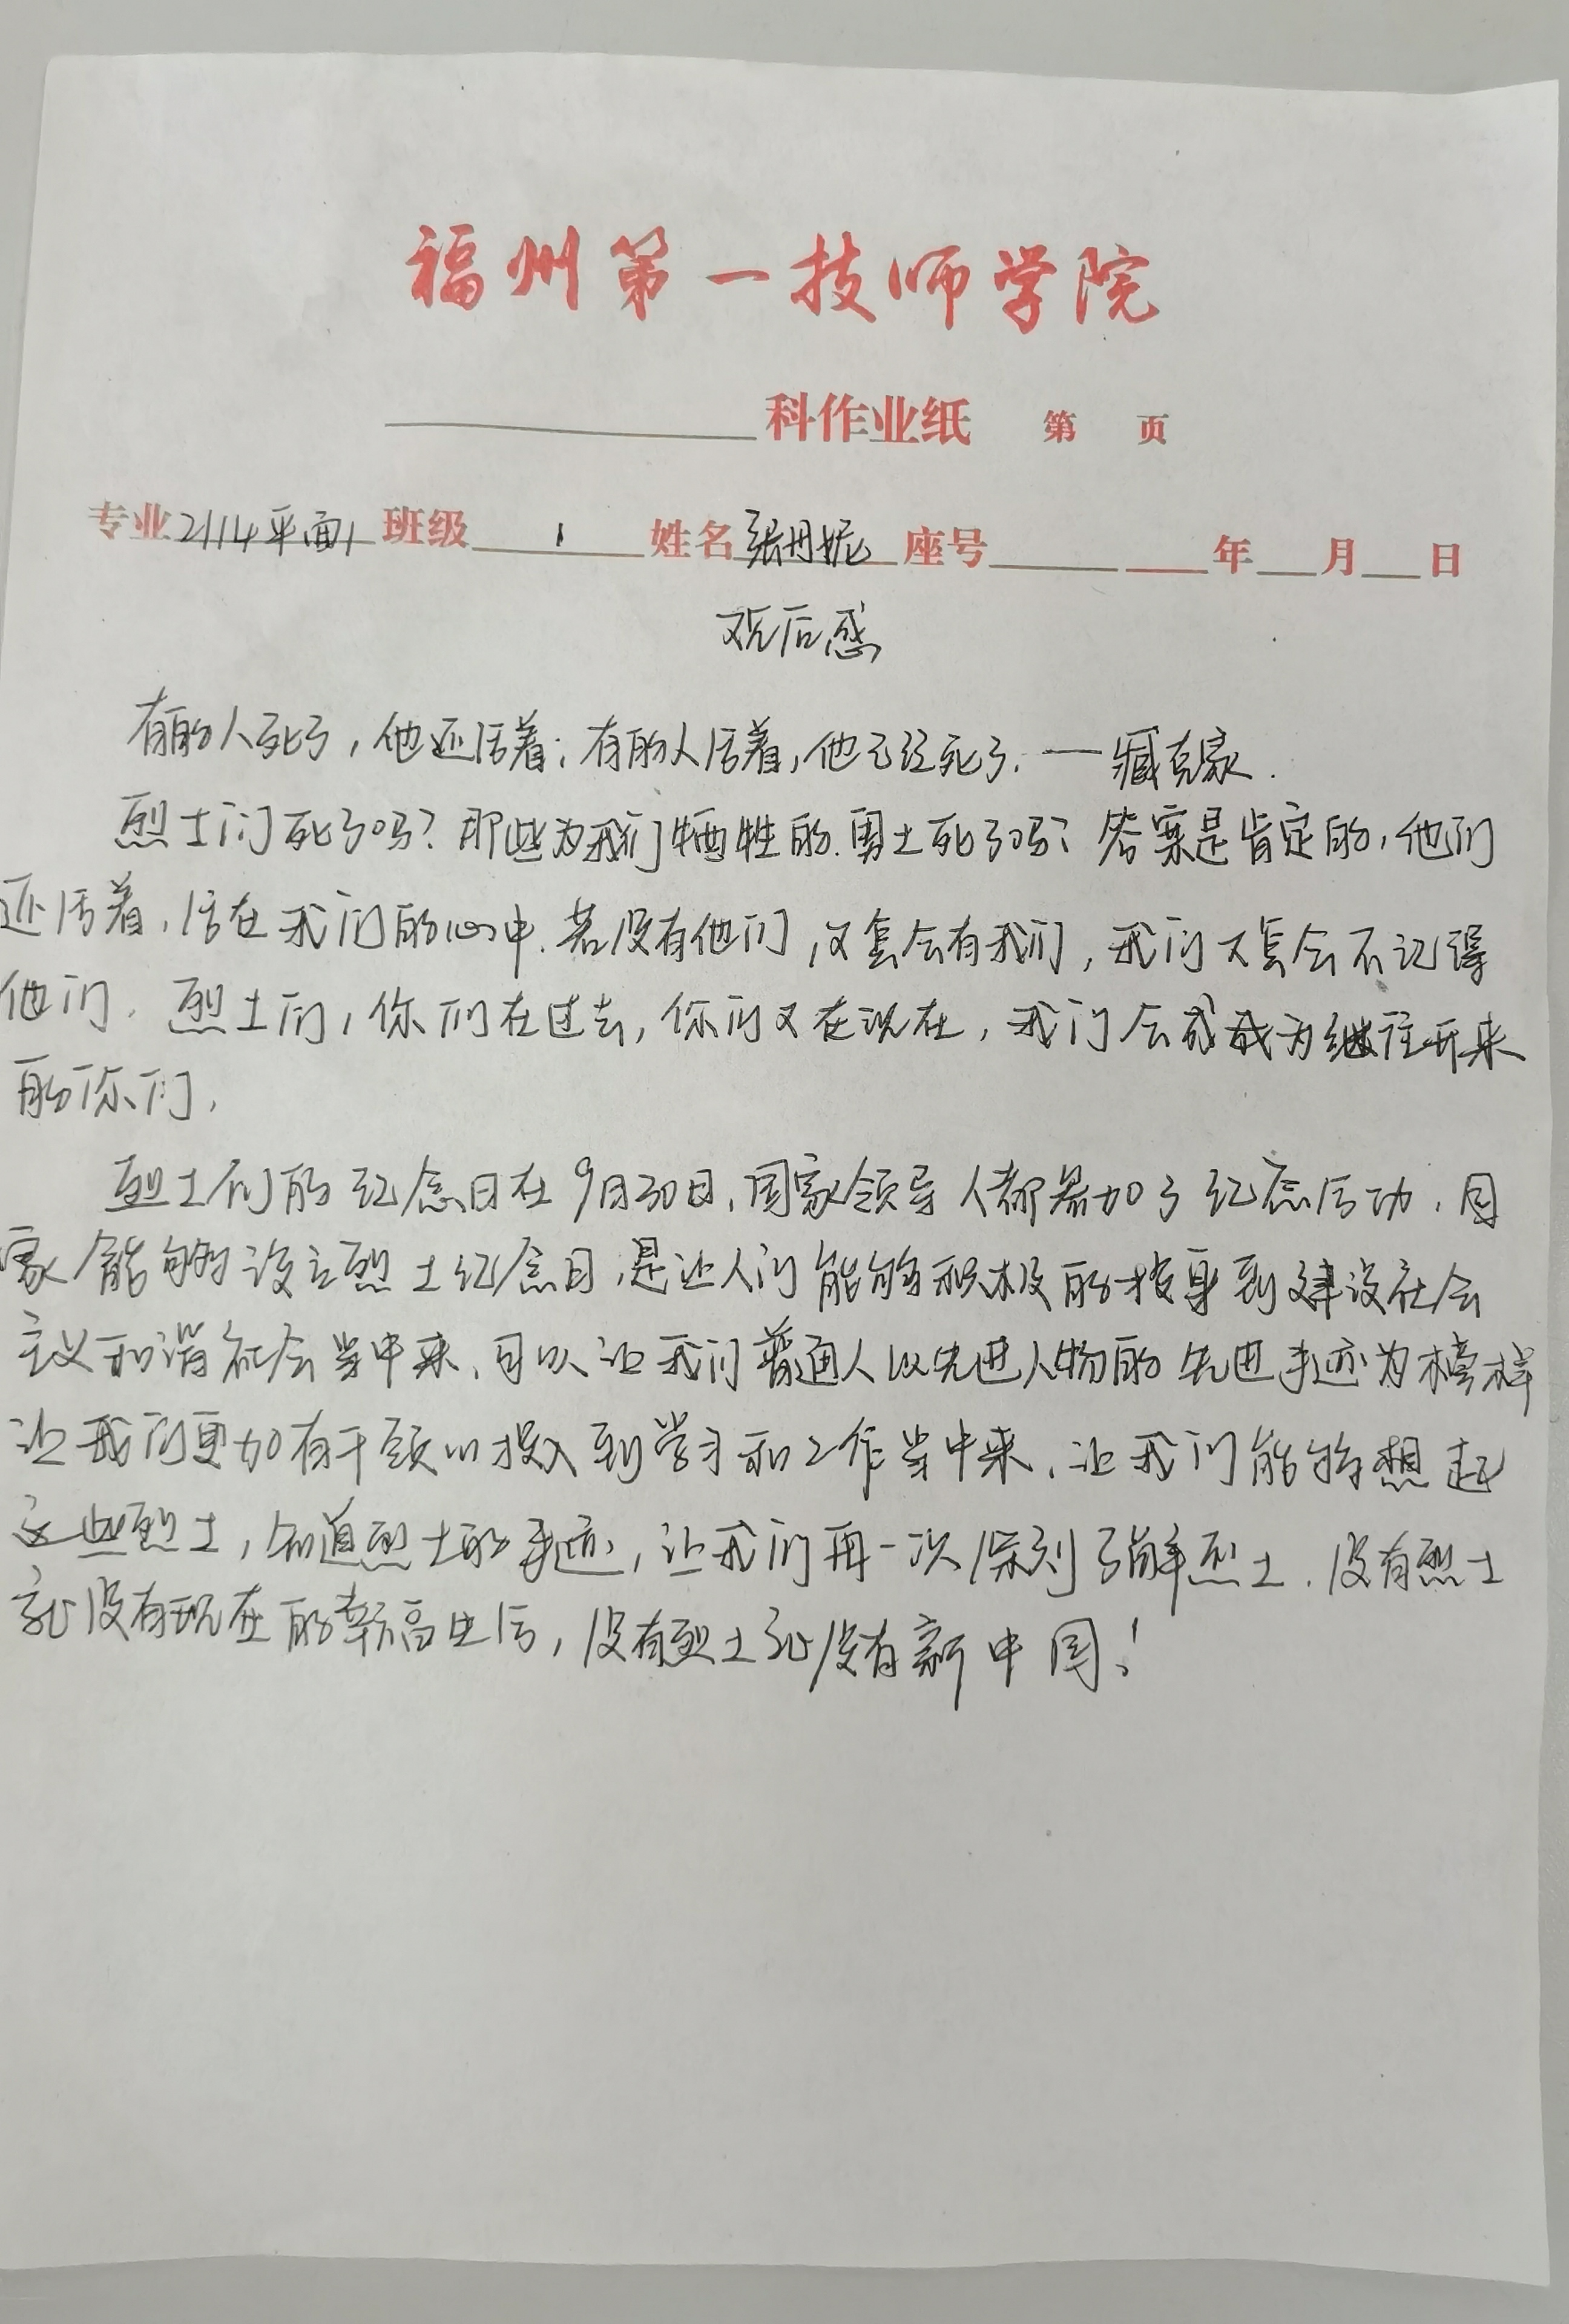 福州第一技师学院
科作业纸 第 页
专业2114平面1 班级 1 姓名张丹妮 座号 年 月 日
观后感
有的人死了，他还活着；有的人活着，他已经死了.——臧克家.
烈士们死了吗？那些为我们牺牲的勇士死了吗？答案是肯定的，他们
还活着，活在我们的心中.若没有他们，又怎会有我们，我们又怎会不记得
他们.烈士们，你们在过去，你们又在现在，我们会成为继往开来
的你们.
烈士们的纪念日在9月30日，国家领导人都参加了纪念活动.国
家能够设立烈士纪念日，是让人们能够积极的投身到建设社会
主义和谐社会当中来，可以让我们普通人以先进人物的先进事迹为榜样
让我们更加有干颈的投入到学习和工作当中来，让我们能够想起
这些烈士，知道烈士的事迹，让我们再一次深刻了解烈士.没有烈士
就没有现在的幸福生活，没有烈士就没有新中国！